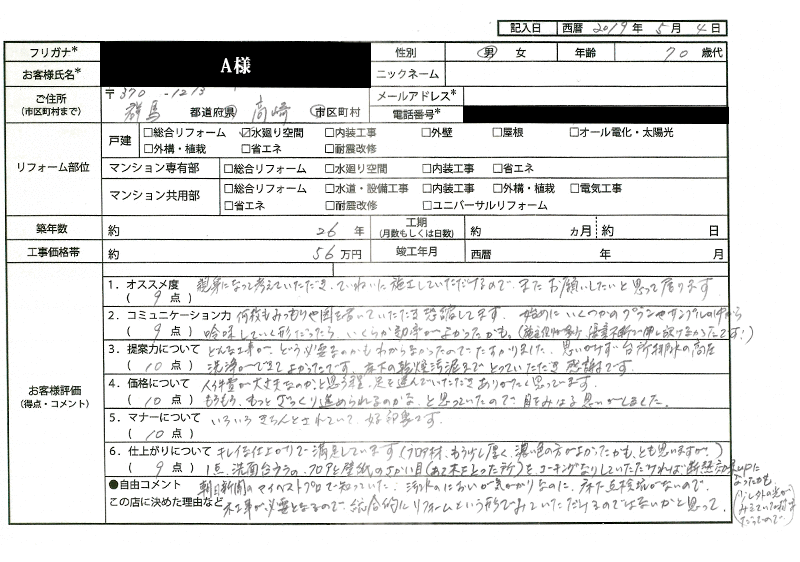 記入日 西暦 2019 年 5 月 4 日
フリガナ* A様 性別 男 女 年齢 70 歳代
お客様氏名* ニックネーム
ご住所 〒370-1213 メールアドレス*
(市区町村まで) 群馬 都道府県 高崎 市区町村 電話番号*
リフォーム部位
戸建 □総合リフォーム ☑水廻り空間 □内装工事 □外壁 □屋根 □オール電化・太陽光
□外構・植栽 □省エネ □耐震改修
マンション専有部 □総合リフォーム □水廻り空間 □内装工事 □省エネ
マンション共用部 □総合リフォーム □水道・設備工事 □内装工事 □外構・植栽 □電気工事
□省エネ □耐震改修 □ユニバーサルリフォーム
築年数 約 26 年 工期(月数もしくは日数) 約 ヵ月 約 日
工事価格帯 約 56 万円 竣工年月 西暦 年 月
お客様評価
(得点・コメント)
1.オススメ度 親身になって考えていただき、ていねいに施工していただけるので、またお願いしたいと思って居ります
(9点)
2.コミュニケーション力 何枚もみつもりや図を書いていただき恐縮してます。始めにいくつかのプランやサンプルの中から
(9点) 吟味していく形だったら、いくらか効率がよかったかも。
3.提案力について どんな工事が、どう必要なのかもわからなかったのでたすかりました。思いがけず台所排水の高圧
(10点) 洗浄ができてよかったです。感謝です。
4.価格について 人件費が大丈夫なのかと思う程、足を運んでいただきありがたく思ってます。
(10点) もっとざっくり進められるのかな、と思っていたので、目をみはる思いがしました。
5.マナーについて いろいろきちんとされていて、好印象です。
(10点)
6.仕上がりについて キレイな仕上がりで満足しています(フロア材、もう少し厚く、濃い色の方がよかったかも、とも思いますが。)
(9点) 1点、洗面台ウラの、フロアと壁紙のさかい目(あつ木をとった所)をコーキングなりしていただければ断熱効果upに
なったかも
(少し外の光が
みえていた
だったので)
●自由コメント
この店に決めた理由など
朝日新聞のマイベストプロで知っていた。汚水のにおいが気がかりなのに、床下点検坑がないので、
木工事が必要となるので、総合的にリフォームという形でみていただけるのではないかと思って。